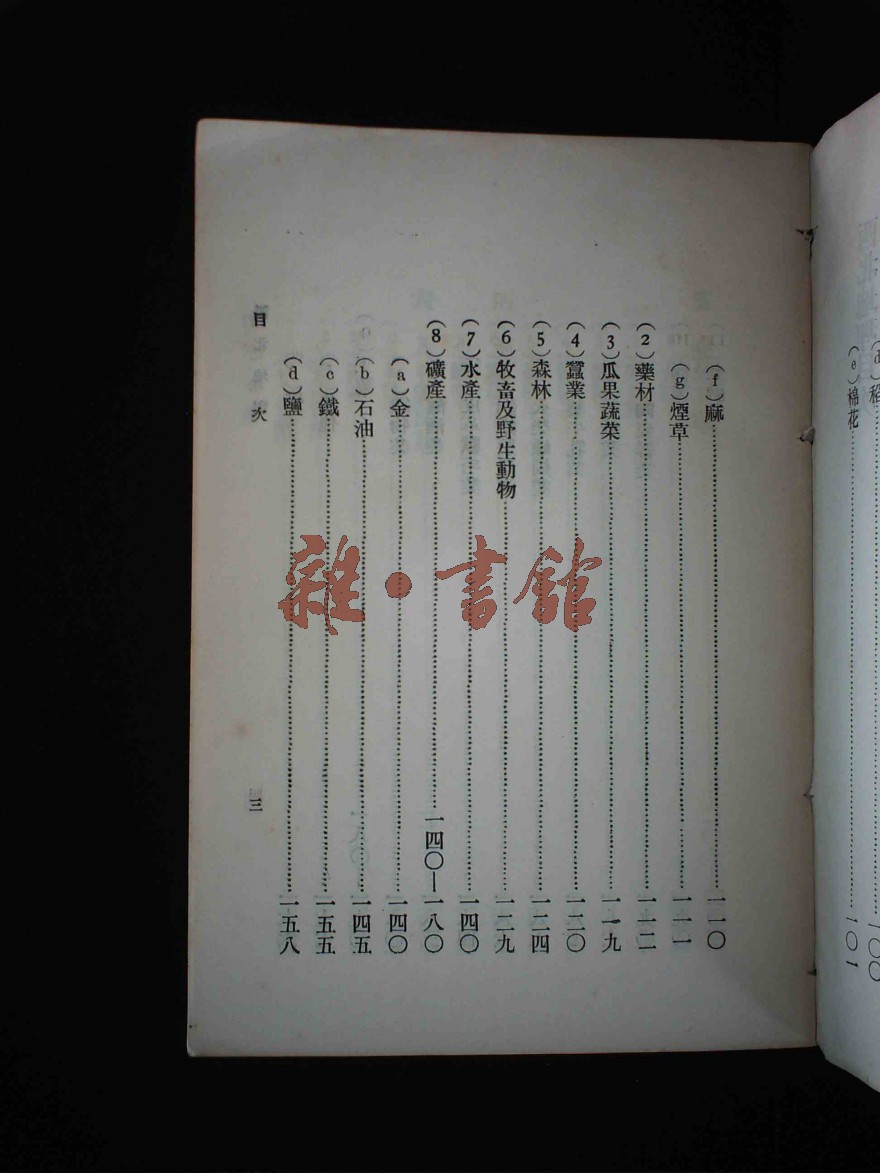 （d）稻……一〇〇
（e）棉花……一〇一
（f）麻……一一〇
（g）煙草……一一一
（2）藥材……一一二
（3）瓜果蔬菜……一一九
（4）蠶業……一二〇
（5）森林……一二四
（6）牧畜及野生動物……一二九
（7）水產……一四〇
（8）礦產……一四〇—一八〇
（a）金……一四〇
（b）石油……一四五
（c）鐵……一五五
（d）鹽……一五八
目次
三
雜·書館